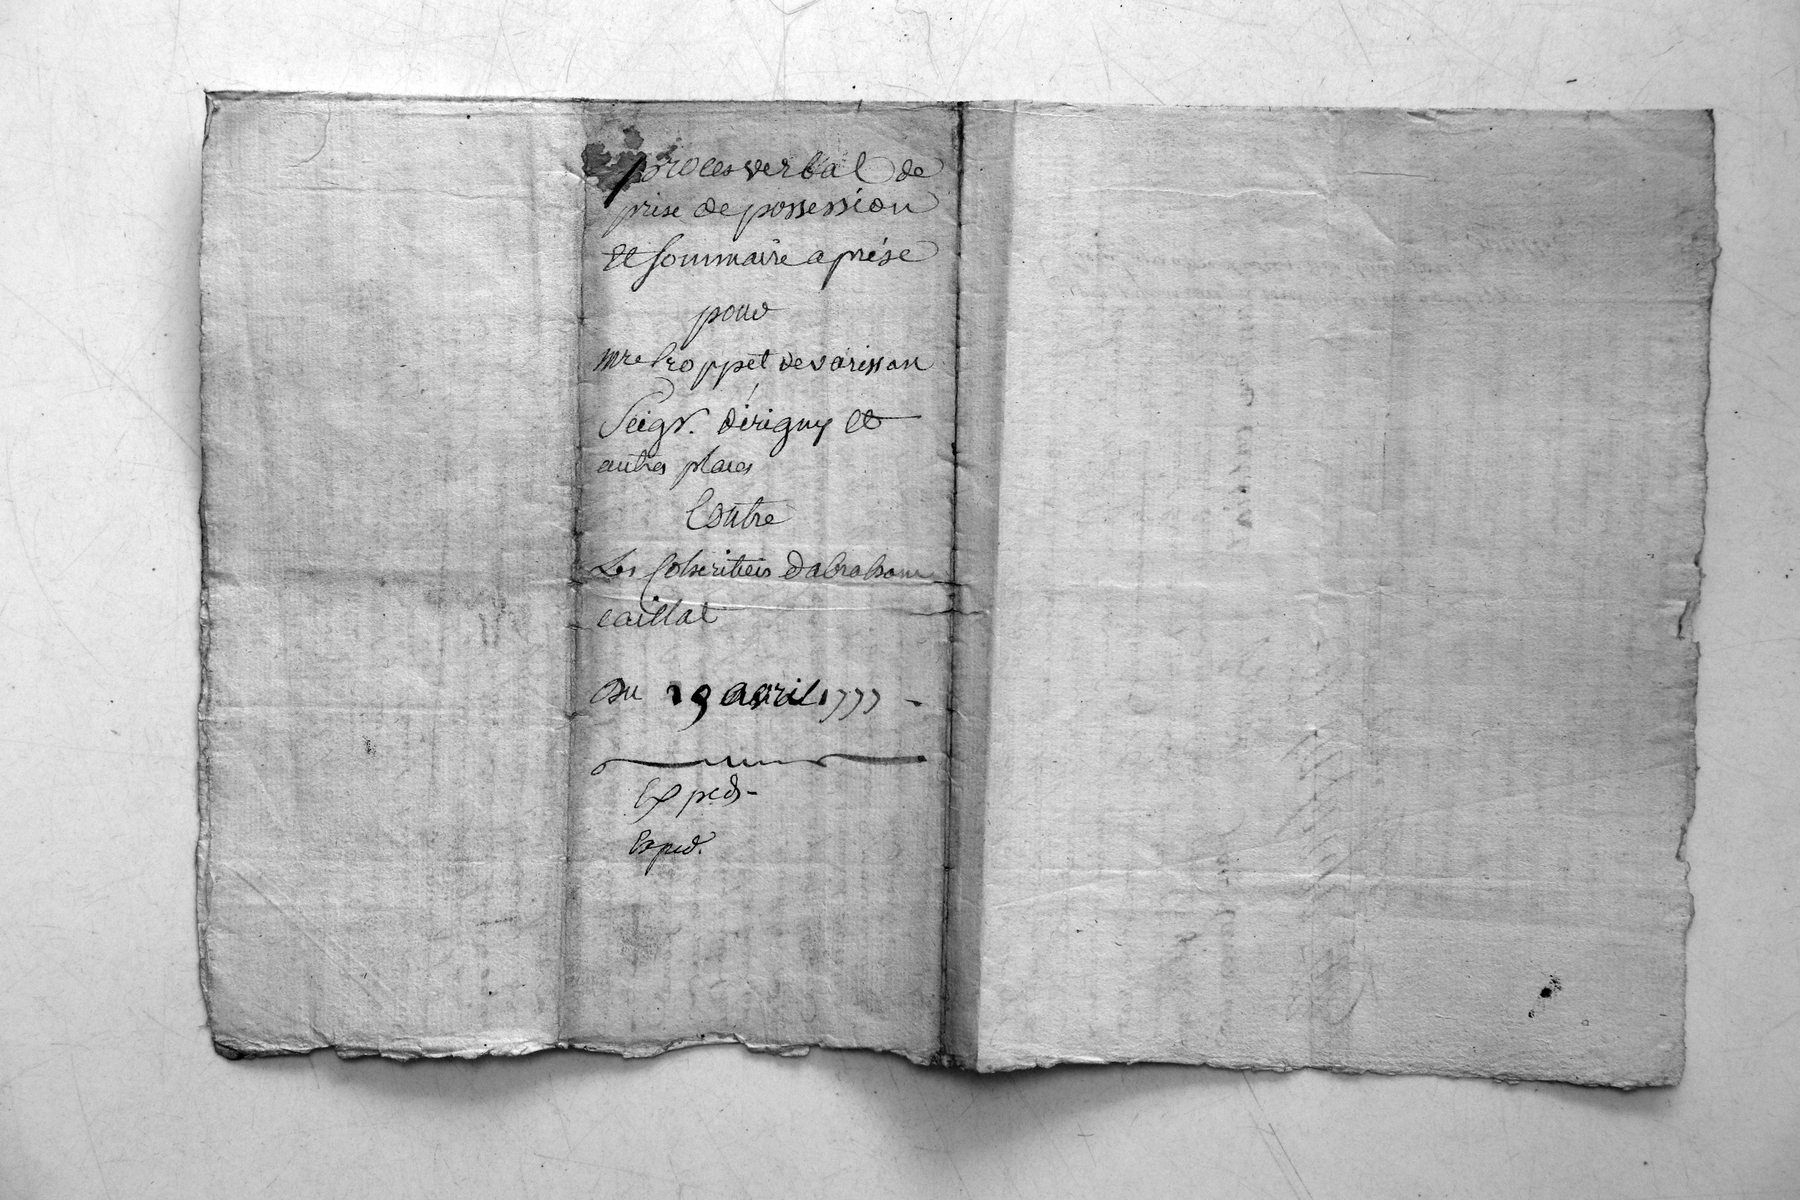 proces verbal de
prise de possession
Et sommaire aprése
pour
mre Croppet de varissan
Seigr. dirigny et
autres places
Contre
Les Coheritiers dabraham
caillat
Du 29 avril 1777 -
Exped-
Exped.